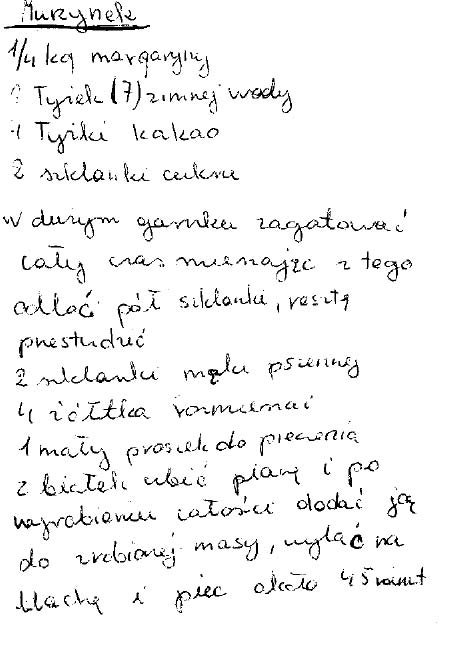 Murzynek
1/4 kg margaryny
Łyżek (7) zimnej wody
4 Łyżki kakao
2 szklanki cukru
w dużym garnku zagotować
cały czas mieszając z tego
odlać pół szklanki, resztę
przestudzić
2 szklanki mąki pszennej
4 żółtka rozmieszać
1 mały proszek do pieczenia
z białek ubić pianę i po
wyrobieniu całości dodać ją
do zrobionej masy, wylać na
blachę i piec około 45 minut